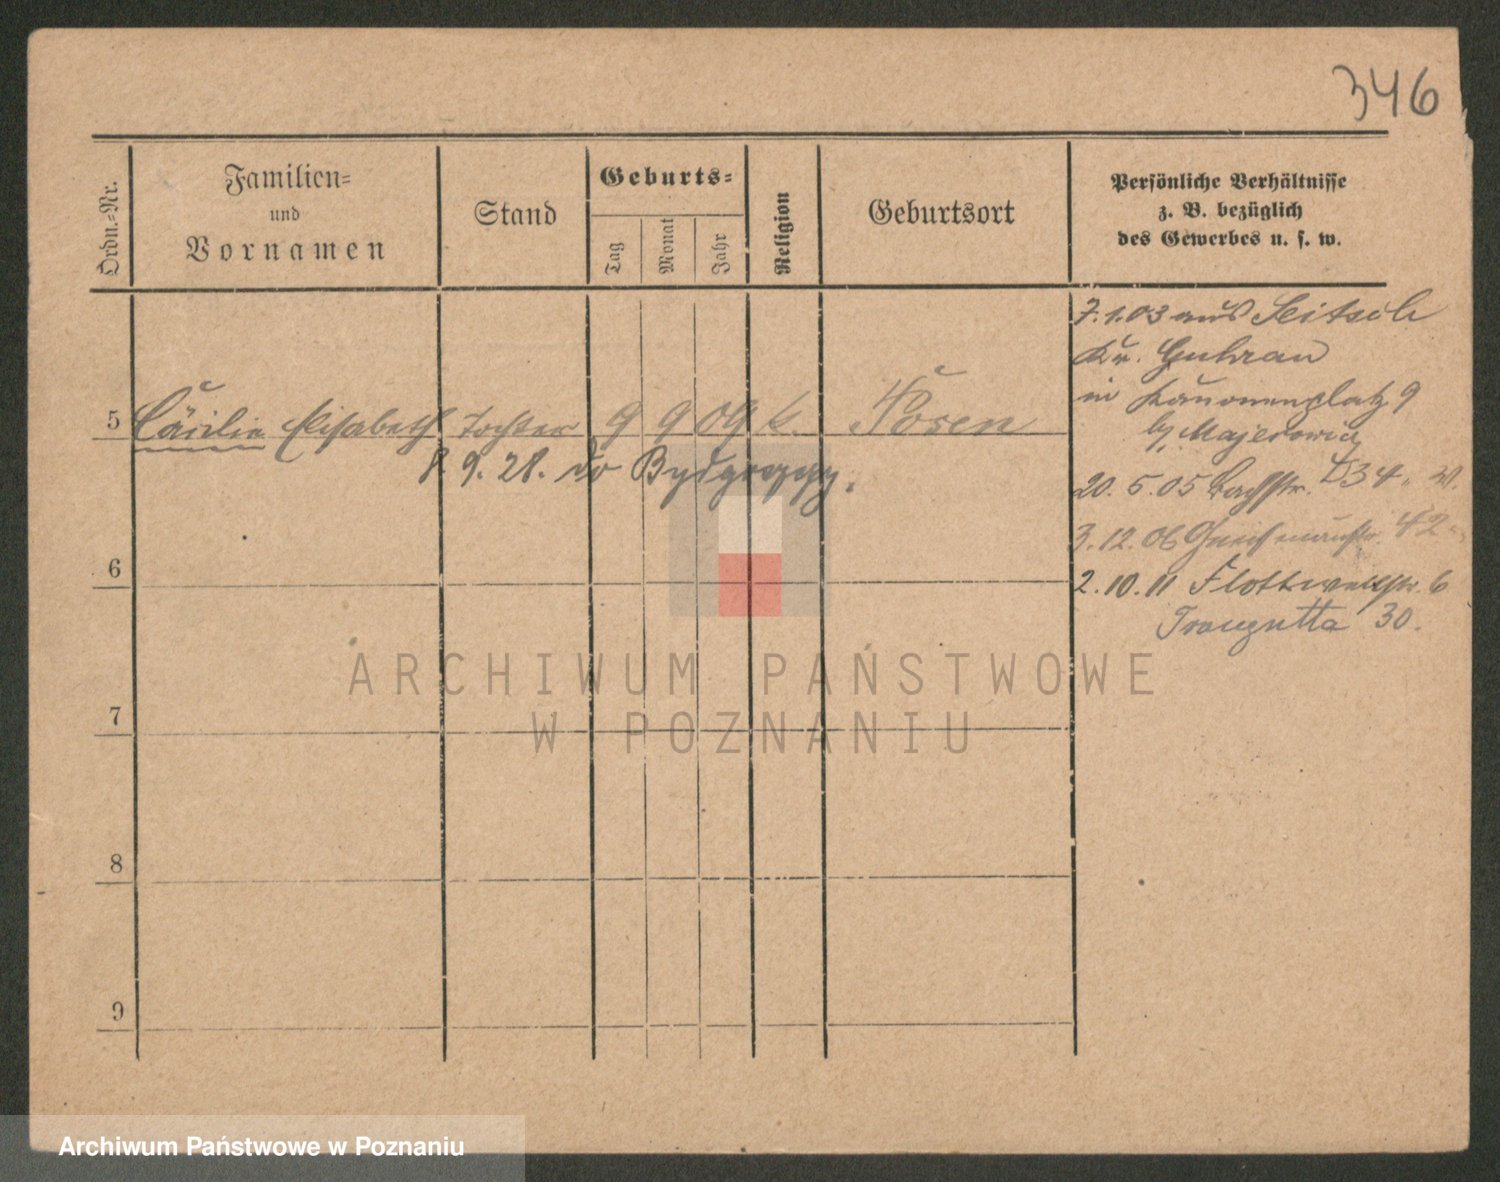 346
Ordn.=Nr.
Familien=
und
Vornamen
Stand
Geburts=
Tag
Monat
Jahr
Religion
Geburtsort
Persönliche Verhältnisse
z. B. bezüglich
des Gewerbes u. s. w.
5 Cäcilie Elisabeth Tochter 9 9 09 k. Posen
8. 9. 28. do Bydgoszczy.
6
7
8
9
7.1.03 aus Seitsch
Kr. Guhrau
in Kanonenplatz 9
b/ Majerowicz
20. 5. 05 Bachstr.
3. 12. 06 42
2. 10. 11 Flottwellstr. 6
Traugutta 30.
ARCHIWUM PAŃSTWOWE
W POZNANIU
Archiwum Państwowe w Poznaniu